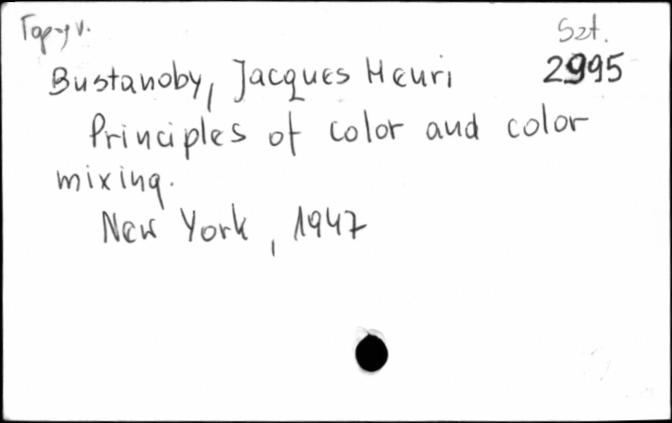 Szt.
Bustanoby, Jacques Henri 2995
Principles of color and color
mixing.
New York, 1947